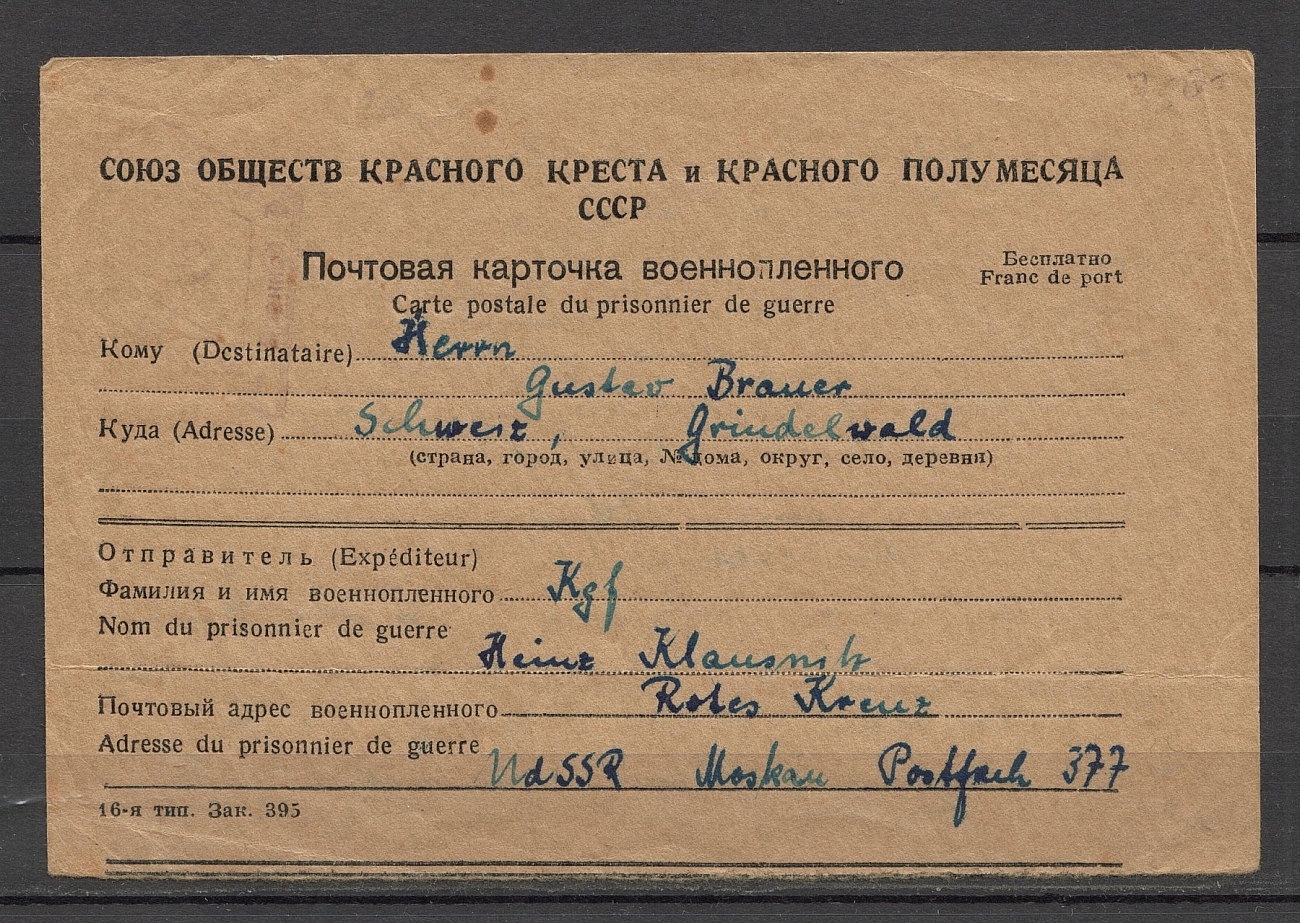 СОЮЗ ОБЩЕСТВ КРАСНОГО КРЕСТА и КРАСНОГО ПОЛУМЕСЯЦА
СССР
Почтовая карточка военнопленного
Бесплатно
Carte postale du prisonnier de guerre
Franc de port
Кому (Destinataire) Herrn
Gustav Brauer
Куда (Adresse) Schweiz, Grindelwald
(страна, город, улица, № дома, округ, село, деревня)
Отправитель (Expéditeur)
Фамилия и имя военнопленного Kgf
Nom du prisonnier de guerre
Heinz
Почтовый адрес военнопленного Rotes Kreuz
Adresse du prisonnier de guerre
UdSSR Moskau Postfach 377
16-я тип. Зак. 395